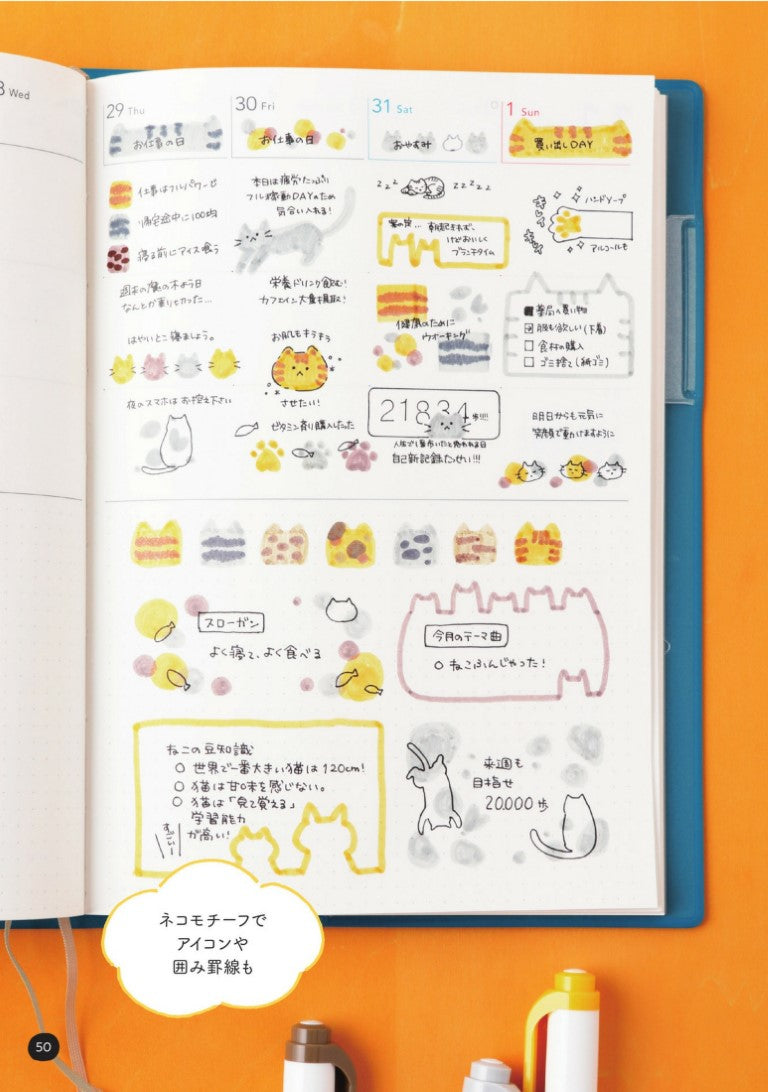 Wed
29 Thu
30 Fri
31 Sat
1 Sun
お仕事の日
お仕事の日
おやすみ
買い出しDAY
仕事はフルパワーで
帰宅途中に100均
寝る前にアイス喰う
週末の魔の木よう日
なんとか乗りきった…
はやいとこ寝ましょう。
夜のスマホはお控え下さい
本日は疲労たっぷり
フル稼動DAYのため
気合い入れる!
栄養ドリンク飲む!
カフェイン大量摂取!
お肌もキラキラ
させたい!
ビタミン剤り購入したった
z z z
z z z z z
朝起きれず、
けどおいしく
ブランチタイム
健康のために
ウオーキング
21834
自己新記録たっせい!!!
ハンドソープ
アルコールも
薬局の買い物
服も欲しい(下着)
食材の購入
ゴミ捨て(紙ゴミ)
明日からも元気に
笑顔で動けますように
スローガン
よく寝て、よく食べる
今月のテーマ曲
○ ねこふんじゃった!
ねこの豆知識
○ 世界で一番大きい猫は120cm!
○ 猫は甘味を感じない。
○ 猫は「見て覚える」
学習能力
が高い!
すごいー
来週も
目指せ
20,000歩
ネコモチーフで
アイコンや
囲み罫線も
50